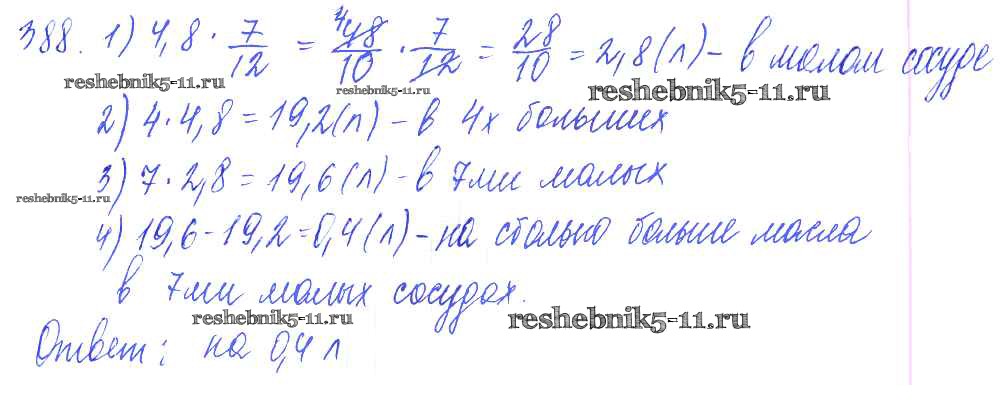 388. 1) 4,8 · 7/12 = 48/10 · 7/12 = 28/10 = 2,8 (л) – в малом сосуде
reshebnik5-11.ru reshebnik5-11.ru reshebnik5-11.ru
2) 4 · 4,8 = 19,2 (л) – в 4х больших
3) 7 · 2,8 = 19,6 (л) – в 7ми малых
reshebnik5-11.ru
4) 19,6 – 19,2 = 0,4 (л) – на столько больше масла
в 7ми малых сосудах.
reshebnik5-11.ru reshebnik5-11.ru
Ответ: на 0,4 л